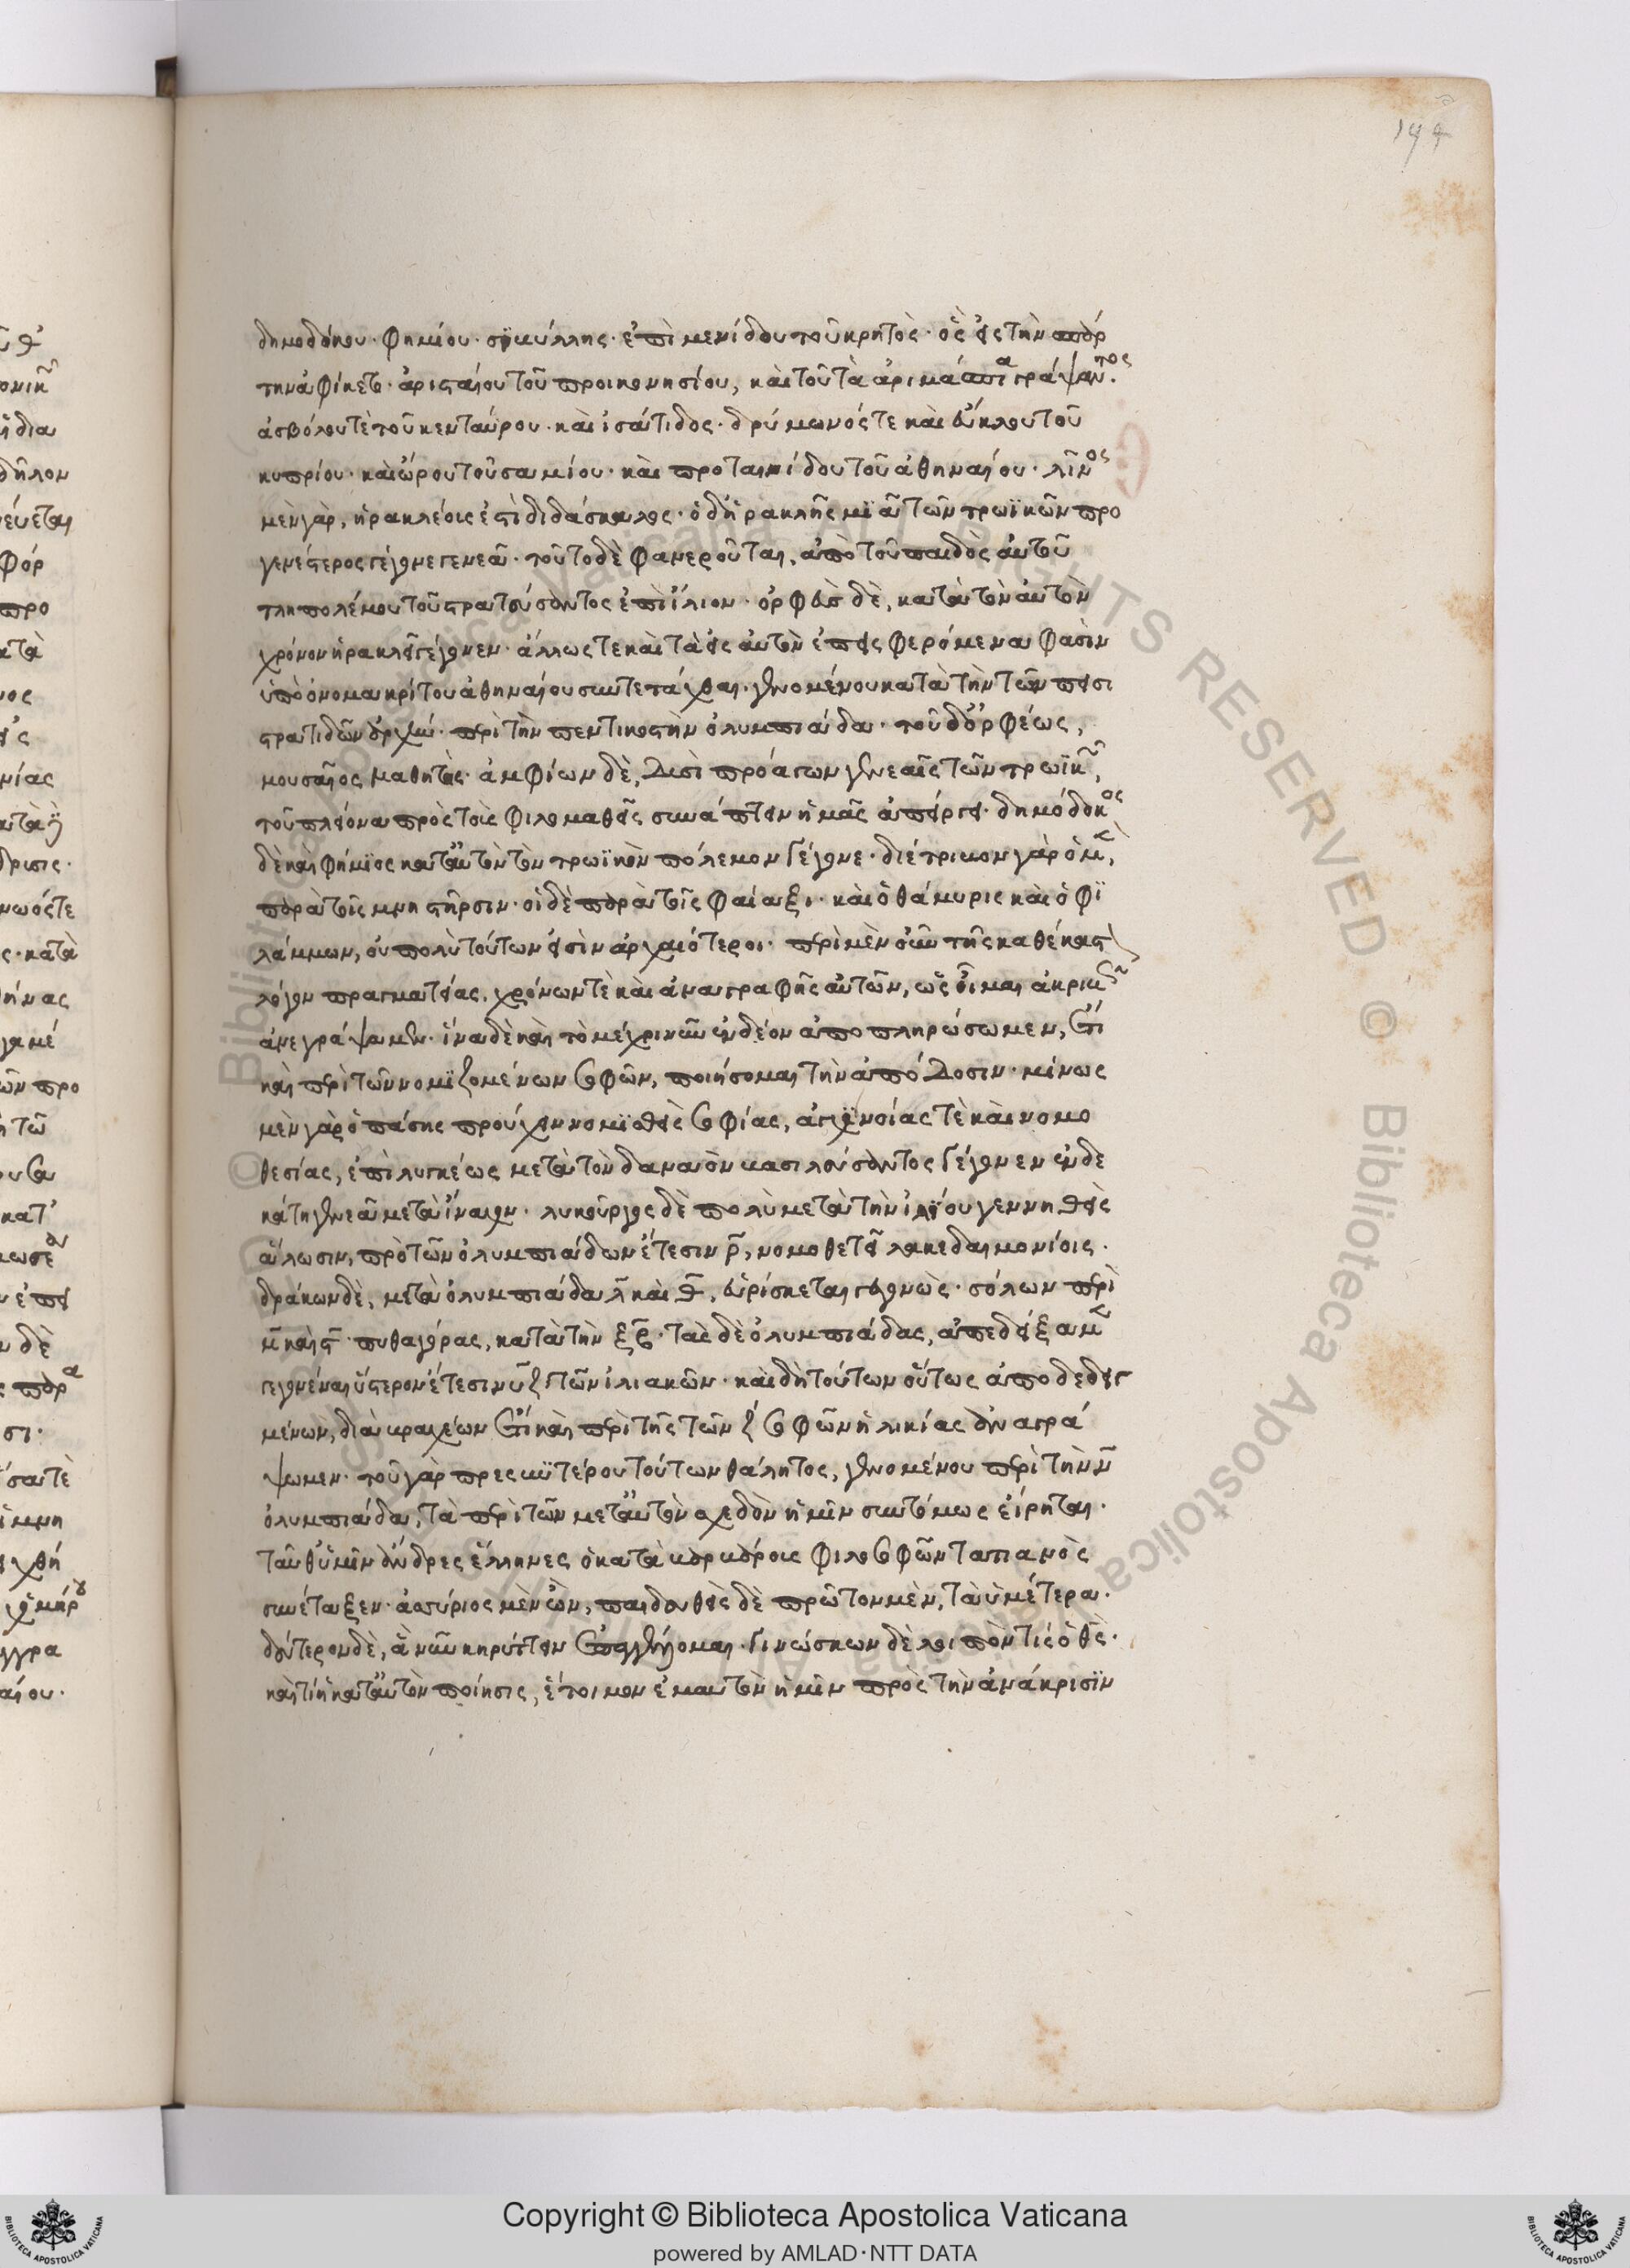 194
δημοδόκου· φημίου· σιβύλλης· ἐπιμενίδου τοῦ κρητὸς· ὃς εἰς τὴν σπάρ
την ἀφίκετο· ἀρισταίου τοῦ προικονησίου, καὶ τοῦ τὰ ἀριμάσπια γράψαντος·
ἀσβόλου τὲ τοῦ κενταύρου· καὶ ἰσάτιδος· δρύμωνός τε καὶ εὔκλου τοῦ
κυπρίου· καὶ ὥρου τοῦ σαμίου· καὶ προταινίδου τοῦ ἀθηναίου· λῖνος
μὲν γὰρ, ἡρακλέοις ἐστὶ διδάσκαλος· ὁ δὴ ρακλῆς μιᾶ τῶν τρωϊκῶν προ
γενέστερος γέγονε γενεᾶ· τοῦτο δὲ φανεροῦται, ἀπὸ τοῦ παιδὸς αὐτοῦ
τληπολέμου τοῦ στρατεύσαντος ἐπὶ ἴλιον· ὀρφεὺς δὲ, κατὰ τὸν αὐτὸν
χρόνον ἡρακλεῖ γέγονεν· ἄλλως τε καὶ τὰ εἰς αὐτὸν ἐπεισφερόμενα φασὶν
ὑπὸ ὀνομακρίτου ἀθηναίου συντετάχθαι· γενομένου κατὰ τὴν τῶν πεισι
στρατιδῶν ἀρχὴν· περὶ τὴν πεντικοστὴν ὀλυμπιάδα· τοῦ δ' ὀρφέως,
μουσαῖος μαθητὴς· ἀμφίων δὲ, δυσὶ προάγων γενεαῖς τῶν τρωϊκῶν,
τοῦ πλείονα πρὸς τοὺς φιλομαθεῖς συνάπτειν ἡμᾶς ἀπείργει· δημόδοκος
δὲ καὶ φήμιος κατ' αὐτὸν τὸν τρωϊκὸν πόλεμον γέγονε· διέτριβον γὰρ ὁ μὲν,
παρὰ τοῖς μνηστῆρσιν· οἱ δὲ παρὰ τοῖς φαίαξι· καὶ ὁ θάμυρις καὶ ὁ φι
λάμμων, οὐ πολὺ τούτων εἰσὶν ἀρχαιότεροι· περὶ μὲν οὖν τῆς καθέκαστον
λόγων πραγματείας, χρόνων τὲ καὶ ἀναγραφῆς αὐτῶν, ὡς οἶμαι ἀκριβῶς
ἀνεγράψαμεν· ἵνα δὲ καὶ τὸ μέχρι νῦν ἐνδέον ἀποπληρώσωμεν, ἔτι
καὶ περὶ τῶν νομιζομένων σοφῶν, ποιήσομαι τὴν ἀπόδοσιν· μίνως
μὲν γὰρ ὁ πάσης προύχειν νομισθεὶς σοφίας, ἀγχινοίας τὲ καὶ νομο
θεσίας, ἐπὶ λυγκέως μετὰ τὸν δαναὸν βασιλεύσαντος γέγονεν ἐνδε
κάτη γενεᾶ μετὰ ἴναχον· λυκοῦργος δὲ πολὺ μετὰ τὴν ἰλίου γεννηθεὶς
ἅλωσιν, πρὸ τῶν ὀλυμπιάδων ἔτεσιν ρ̄, νομοθετεῖ λακεδαιμονίοις·
δράκων δὲ, μετὰ ὀλυμπιάδα λ̄ καὶ θ̄, εὑρίσκεται γεγονὼς· σόλων περὶ
μ̄ καὶ ϛ̄· πυθαγόρας, κατὰ τὴν ξβ̄· τὰς δὲ ὀλυμπιάδας, ἀπεδείξαμεν
γεγονέναι ὕστερον ἔτεσιν ῡζ τῶν ἰλιακῶν· καὶ δὴ τούτων οὕτως ἀποδεδειγ
μένων, διὰ βραχέων ἔτι καὶ περὶ τῆς τῶν ζ σοφῶν ἡλικίας ἀναγρά
ψωμεν· τοῦ γὰρ πρεσβυτέρου τούτων θάλητος, γενομένου περὶ τὴν ν̄
ὀλυμπιάδα, τὰ περὶ τῶν μετ' αὐτὸν σχεδὸν ἡμῖν συντόμως εἴρηται·
ταῦθ' ὑμῖν ἄνδρες ἕλληνες ὁ κατὰ βαρβάροις φιλοσοφῶν τατιανὸς
συνέταξεν· ἀσύριος μὲν ὢν, παιδευθεὶς δὲ πρῶτον μὲν, τὰ ὑμέτερα·
δεύτερον δὲ, ἃ νῦν κηρύττειν ἐπαγγέλλομαι· γινώσκων δὲ λοιπὸν τίς ὁ θς·
καὶ τίς ἡ κατ' αὐτὸν ποίησις, ἕτοιμον ἐμαυτὸν ἡμῖν πρὸς τὴν ἀνάκρισιν
Copyright © Biblioteca Apostolica Vaticana
powered by AMLAD·NTT DATA